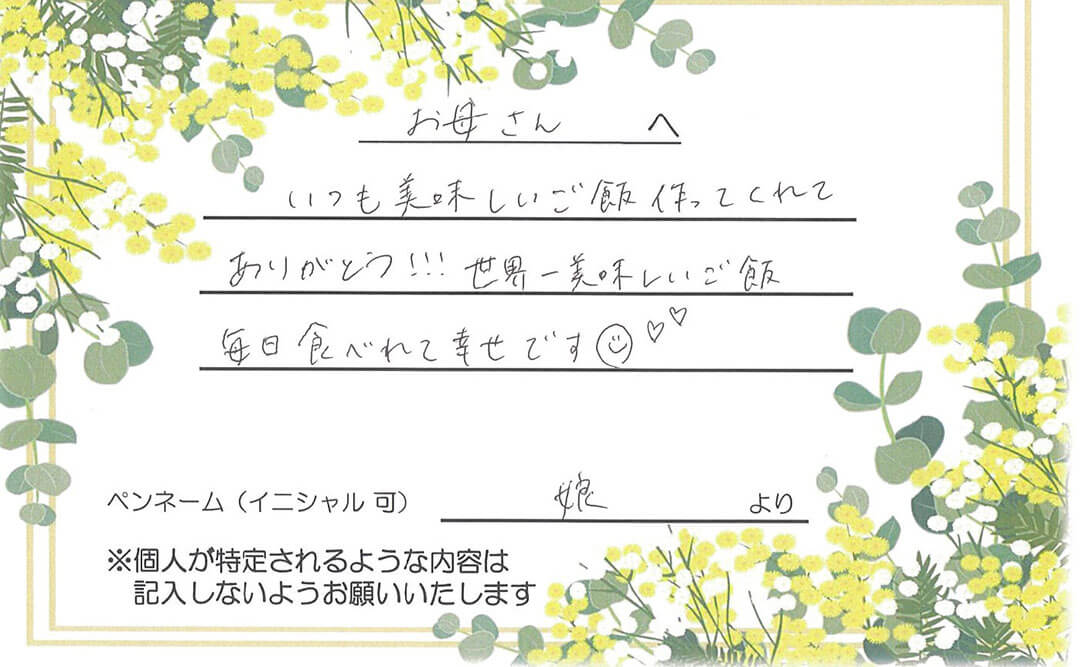 お母さん へ
いつも美味しいご飯作ってくれて
ありがとう!!! 世界一美味しいご飯
毎日食べれて幸せです
ペンネーム（イニシャル 可） 娘 より
※個人が特定されるような内容は
記入しないようお願いいたします